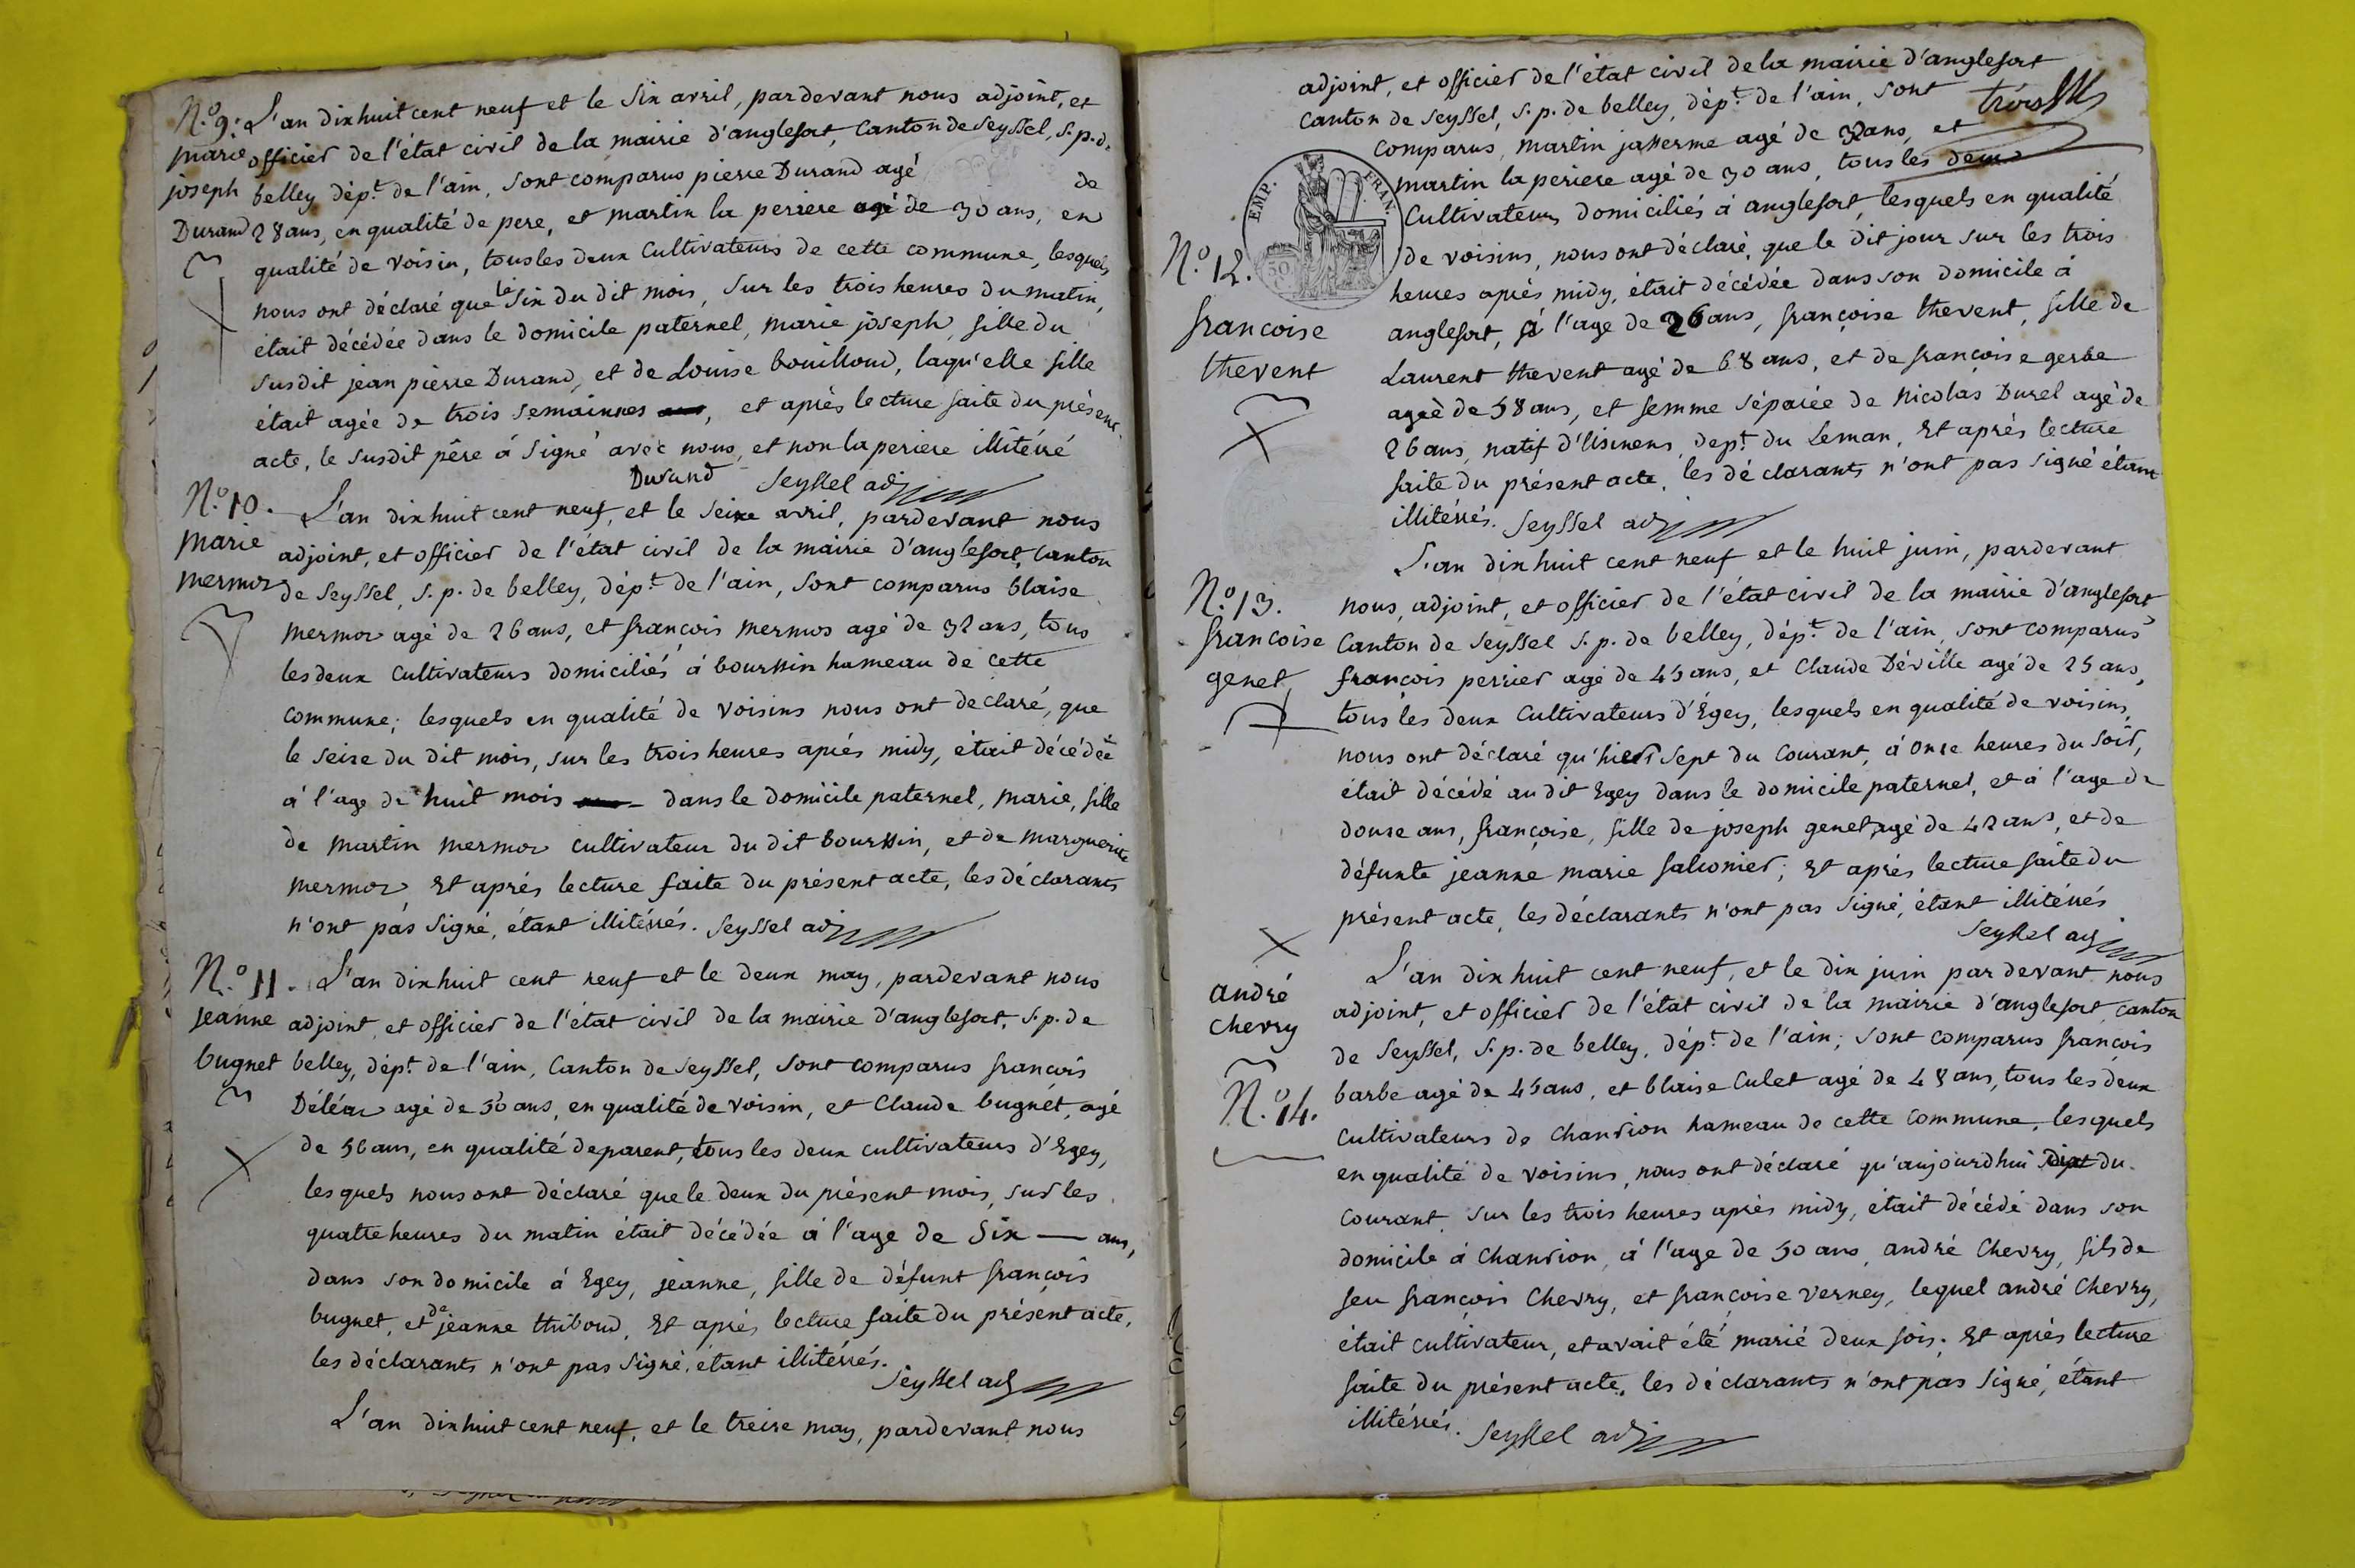 N.o 9. L'an dix huit cent neuf et le six avril, pardevant nous adjoint, et
marie officier de l'état civil de la mairie d'anglefort, canton de Seyssel, s.p.d.
joseph belley dép.t de l'ain, sont comparus pierre Durand agé de
Durand 28 ans, en qualité de pere, et martin la periere agé de 30 ans, en
qualité de voisin, tous les deux cultivateurs de cette commune, lesquels
nous ont déclaré que le six du dit mois, sur les trois heures du matin,
était décédée dans le domicile paternel, marie joseph, fille du
susdit jean pierre Durand, et de Louise bouilloud, laqu'elle fille
était agée de trois semainnes, et après lecture faite du présent
acte, le susdit père à signé avec nous, et non la periere illitéré
Durand Seyssel adj
N.o 10. L'an dix huit cent neuf, et le seixe avril, pardevant nous
marie adjoint, et officier de l'état civil de la mairie d'anglefort, canton
mermoz de Seyssel, s.p. de belley, dép.t de l'ain, sont comparus blaise
mermoz agé de 26 ans, et francois mermos agé de 32 ans, tous
les deux cultivateurs domiciliés à bourssin hameau de cette
commune; lesquels en qualité de voisins nous ont déclaré, que
le seize du dit mois, sur les trois heures après midy, était décédée
à l'age de huit mois dans le domicile paternel, marie, fille
de martin mermoz cultivateur du dit bourssin, et de marguerite
mermoz, Et après lecture faite du présent acte, les déclarants
n'ont pas signé, étant illitérés. Seyssel adj
N.o 11. L'an dix huit cent neuf et le deux may, pardevant nous
jeanne adjoint, et officier de l'état civil de la mairie d'anglefort, s.p. de
bugnet belley, dép.t de l'ain, canton de Seyssel, sont comparus françois
Déléaz agé de 50 ans, en qualité de voisin, et Claude bugnet, agé
de 56 ans, en qualité de parent, tous les deux cultivateurs d'Egey,
lesquels nous ont déclaré que le deux du présent mois, sur les
quatre heures du matin était décédée à l'age de six — ans,
dans son domicile à Egey, jeanne, fille de défunt françois
bugnet, et de jeanne thiboud, Et après lecture faite du présent acte,
les déclarants n'ont pas signé, étant illitérés.
Seyssel adj
L'an dix huit cent neuf, et le treize may, pardevant nous
adjoint, et officier de l'état civil de la mairie d'anglefort
canton de Seyssel, s.p. de belley, dép.t de l'ain, sont trois
comparus, martin jasserme agé de ans, et
martin la periere agé de 30 ans, tous les deux
EMP. FRAN.
cultivateurs domiciliés à anglefort, lesquels en qualité
de voisins, nous ont déclaré, que le dit jour sur les trois
N.o 12. heures après midy, était décédée dans son domicile à
50
francoise anglefort, à l'age de 26 ans, françoise thevent, fille de
thevent Laurent thevent agé de 68 ans, et de françoise gerbe
agée de 58 ans, et femme séparée de Nicolas Durel agé de
26 ans, natif d'Usinens, dep.t du Leman, Et après lecture
faite du présent acte, les déclarants n'ont pas signé étant
illitérés. Seyssel adj
L'an dix huit cent neuf et le huit juin, pardevant
N.o 13. nous, adjoint, et officier de l'état civil de la mairie d'anglefort
francoise canton de Seyssel s.p. de belley, dép.t de l'ain, sont comparus
genet françois perrier agé de 45 ans, et Claude Déville agé de 25 ans,
tous les deux cultivateurs d'Egey, lesquels en qualité de voisins,
nous ont déclaré qu'hier sept du courant, à onze heures du soir,
était décédé au dit Egey dans le domicile paternel, et à l'age de
douze ans, françoise, fille de joseph genet, agé de 42 ans, et de
défunte jeanne marie falconier; Et après lecture faite du
présent acte, les déclarants n'ont pas signé, étant illitérés
Seyssel adj
L'an dix huit cent neuf, et le dix juin par devant nous
andré adjoint, et officier de l'état civil de la mairie d'anglefort canton
chevry de Seyssel, s.p. de belley, dép.t de l'ain; sont comparus françois
N.o 14. barbe agé de 45 ans, et blaise Culet agé de 48 ans, tous les deux
cultivateurs de chanrion hameau de cette commune, lesquels
en qualité de voisins, nous ont déclaré qu'aujourdhui dix du
courant, sur les trois heures après midy, était décédé dans son
domicile à chanrion, à l'age de 50 ans, andré chevry, fils de
feu françois Chevry, et françoise verney, lequel andré chevry,
était cultivateur, et avait été marié deux fois; Et après lecture
faite du présent acte, les déclarants n'ont pas signé, étant
illitérés. Seyssel adj